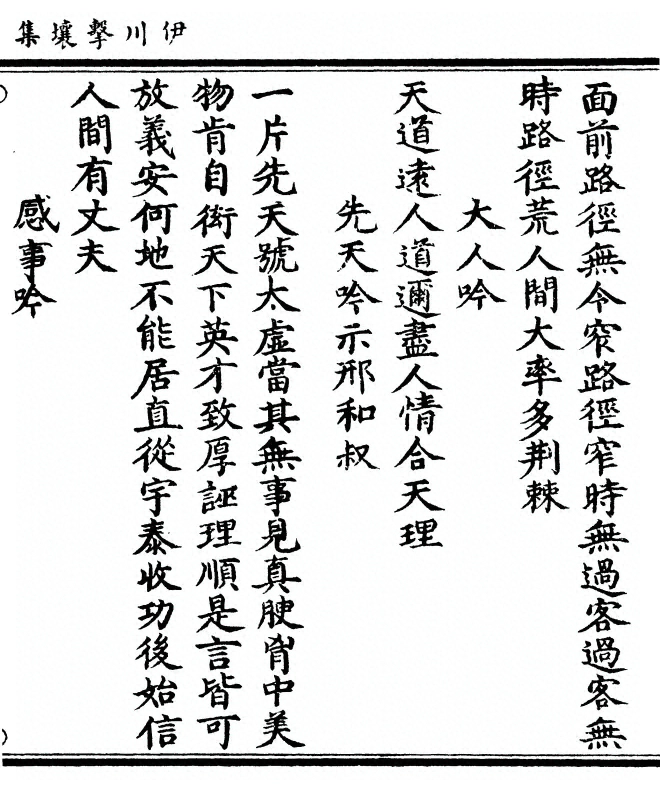 伊川擊壤集
面前路徑無令窄路徑窄時無過客過客無
時路徑荒人間大率多荆棘
大人吟
天道遠人道邇盡人情合天理
先天吟示邢和叔
一片先天號太虛當其無事見真腴胷中美
物肯自衒天下英才致厚誣理順是言皆可
放義安何地不能居直從宇泰收功後始信
人間有丈夫
感事吟